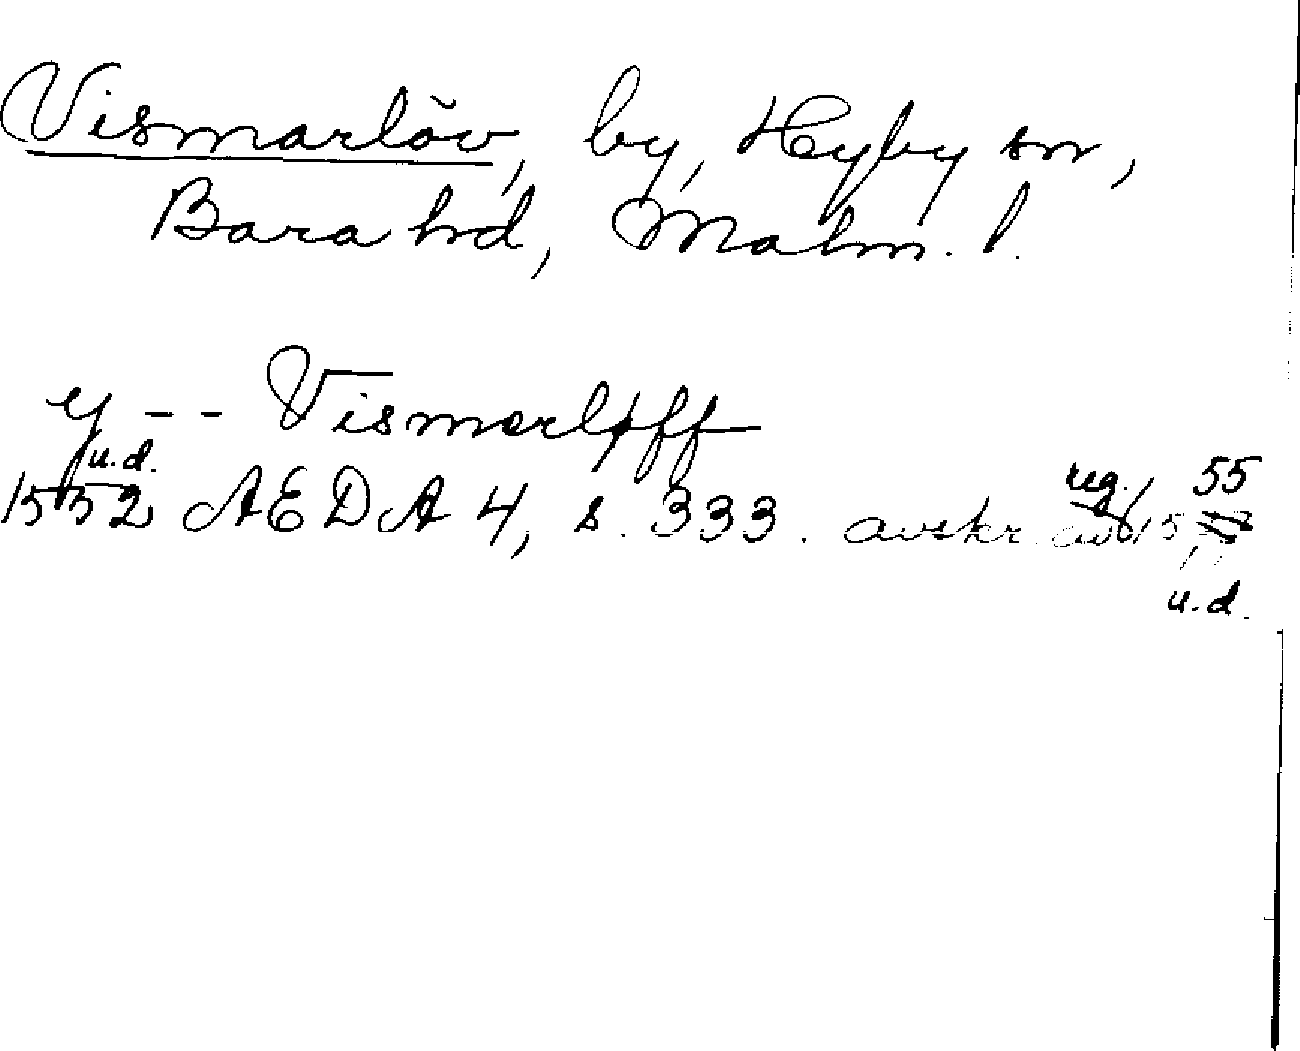 Vismarlöv, by, Hyby sn,
Bara hd, Malm. l.
y -- Vismerløff
u.d.
1552 AEDA 4, s. 333. avskr. av reg. / 55
u.d.